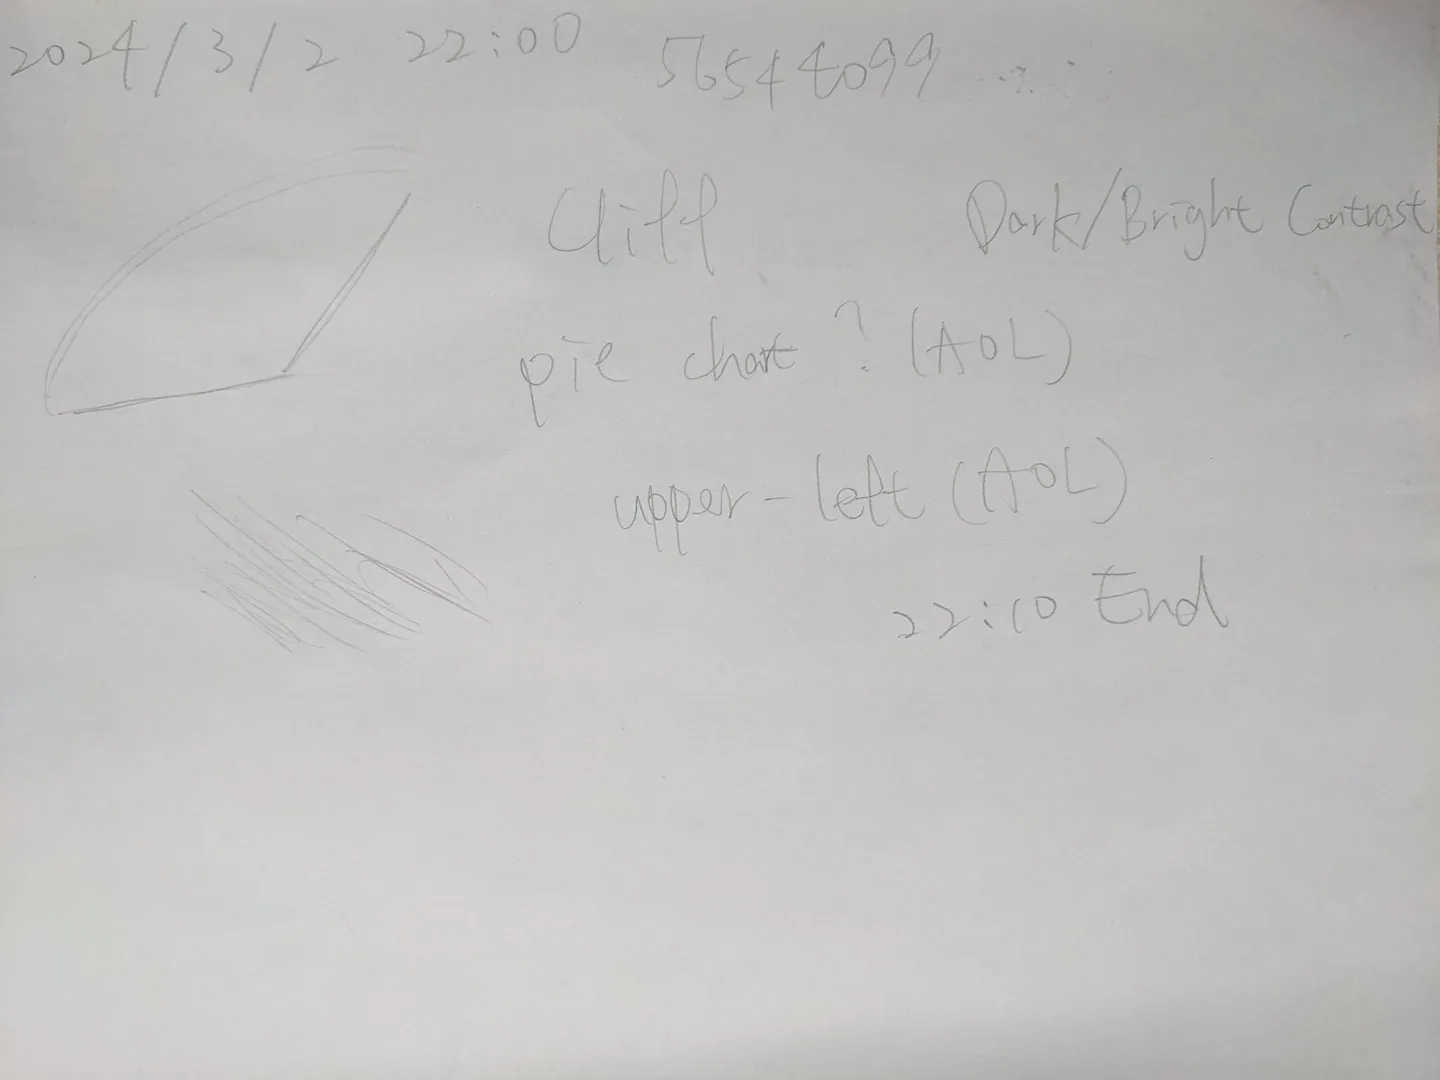 2024/3/2 22:00 56544099
Cliff Dark/Bright Contrast
pie chart? (AOL)
upper-left (AOL)
22:10 End